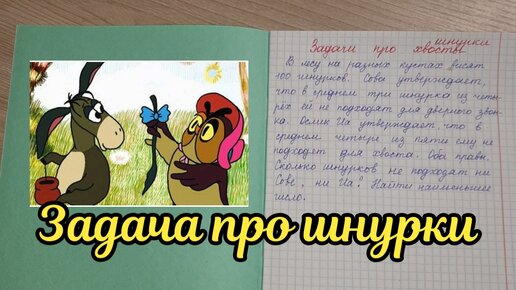 шнурки
Задачи про хвосты
В лесу на разных кустах висят
100 шнурков. Сова утверждает,
что в среднем три шнурка из четы-
рёх ей не подходят для дверного звон-
ка. Ослик Иа утверждает, что в
среднем четыре из пяти ему не
подходят для хвоста. Оба правы.
Сколько шнурков не подходят ни
Сове, ни Иа? Найти наименьшее
число.
Задача про шнурки